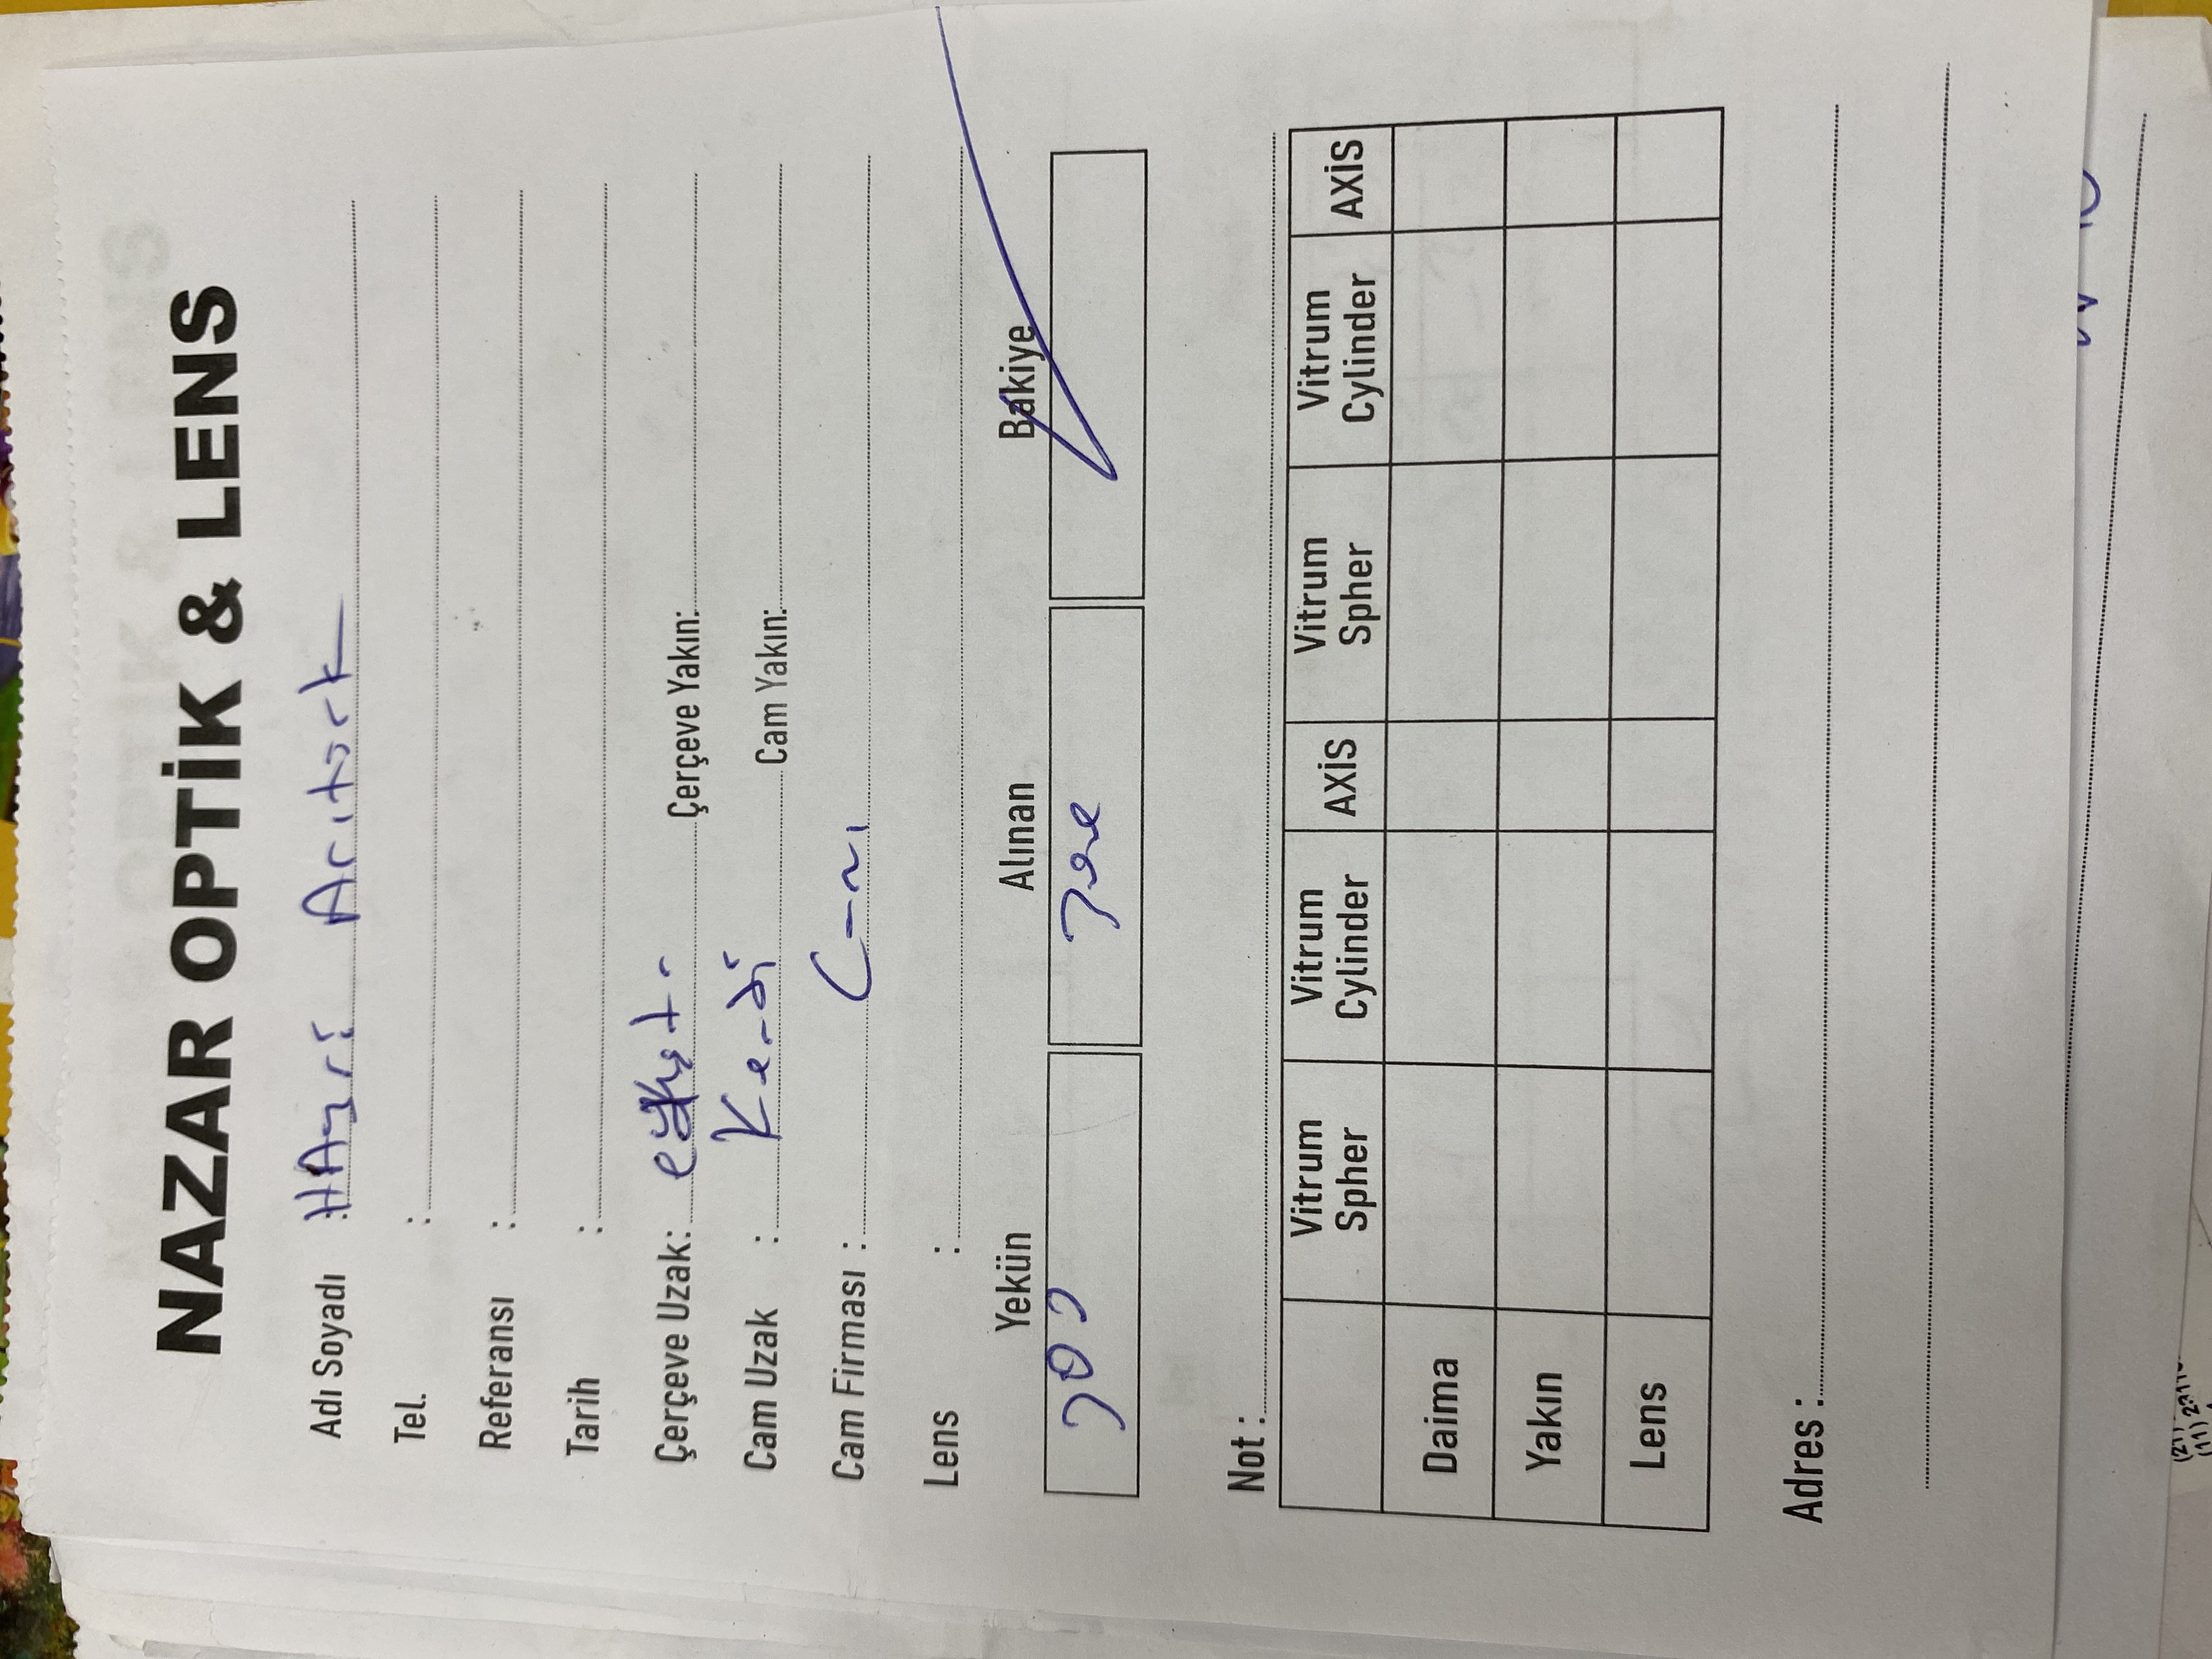 NAZAR OPTİK & LENS
Adı Soyadı : HAyri Arıtürk
Tel. :
Referansı :
Tarih :
Çerçeve Uzak: Çerçeve Yakın:
Cam Uzak : Kendi Cam Yakın:
Cam Firması : Camı
Lens :
Yekün Alınan Bakiye
300
Not :
Vitrum Spher Vitrum Cylinder AXİS Vitrum Spher Vitrum Cylinder AXİS
Daima
Yakın
Lens
Adres :